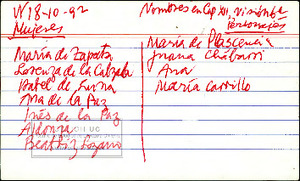 18-10-92
Mujeres
María de Zapata
Lorenza de la Calzada
Isabel de
Ana de la Paz
Inés de la Paz
Aldonza
Beatriz Lozano
Nombres en Cap XII,
Personajes
María de Plascencia
Juana
Ana
María Carrillo